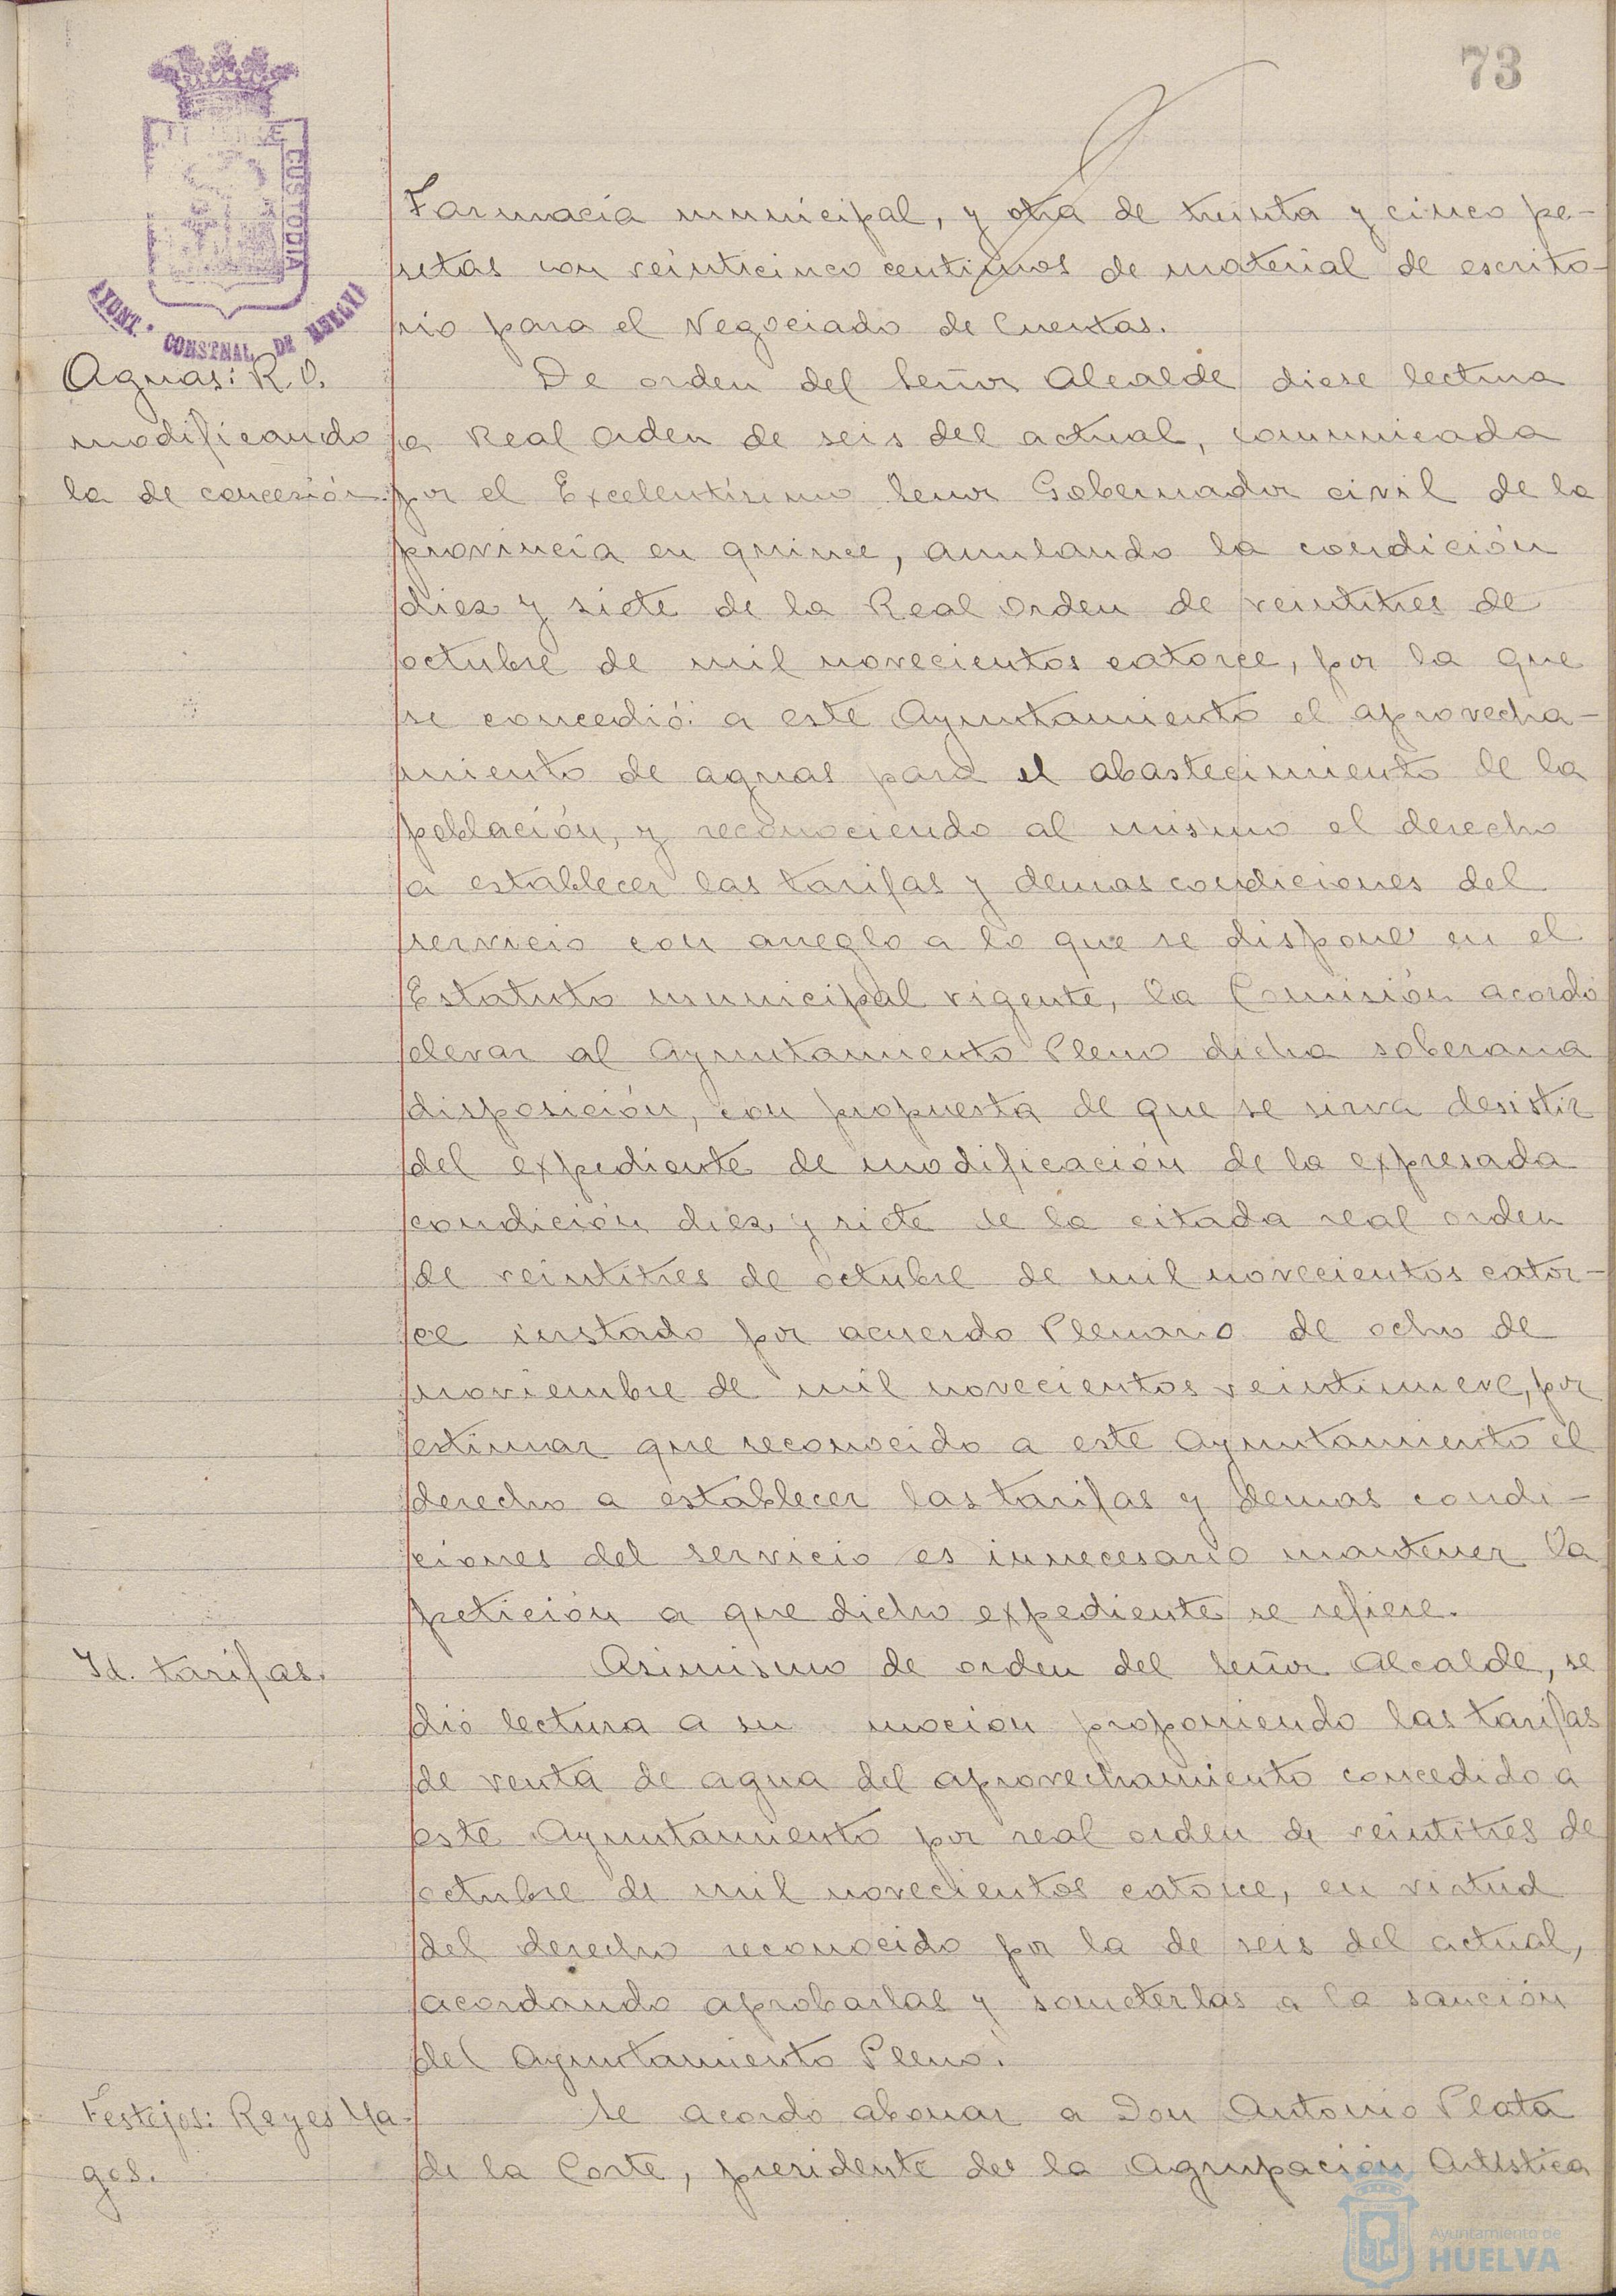 73
CUSTODIA
AYUNT. CONSTNAL DE HUELVA
Farmacia municipal, y otra de treinta y cinco pe-
setas con veinticinco centimos de material de escrito-
rio para el Negociado de Cuentas.
Aguas: R.O.
modificando
la de concesión.
De orden del Señor Alcalde diese lectura
a Real Orden de seis del actual, comunicada
por el Excelentísimo Senor Gobernador civil de la
provincia en quince, anulando la condición
diez y siete de la Real Orden de veintitres de
octubre de mil novecientos catorce, por la que
se concedió a este Ayuntamiento el aprovecha-
miento de aguas para el abastecimiento de la
población, y reconociendo al mismo el derecho
a establecer las tarifas y demas condiciones del
servicio con areglo a lo que se dispone en el
Estatuto municipal vigente, la Comisión acordó
elevar al Ayuntamiento Pleno dicha soberana
disposición, con propuesta de que se sirva desistir
del expediente de modificación de la expresada
condición diez y siete de la citada real orden
de veintitres de octubre de mil novecientos cator-
ce instado por acuerdo Plenario de ocho de
noviembre de mil novecientos veintinueve, por
estimar que reconocido a este Ayuntamiento el
derecho a establecer las tarifas y demas condi-
ciones del servicio es innecesario mantener la
petición a que dicho expediente se refiere.
Id. tarifas.
Asimismo de orden del Señor Alcalde, se
dió lectura a su moción proponiendo las tarifas
de venta de agua del aprovechamiento concedido a
este Ayuntamiento por real orden de veintitres de
octubre de mil novecientos catorce, en virtud
del derecho reconocido por la de seis del actual,
acordando aprobarlas y someterlas a la sanción
del Ayuntamiento Pleno.
Festejos: Reyes Ma-
gos.
Se acordo abonar a Don Antonio Plata
de la Corte, presidente de la Agrupación Artística
Ayuntamiento de
HUELVA